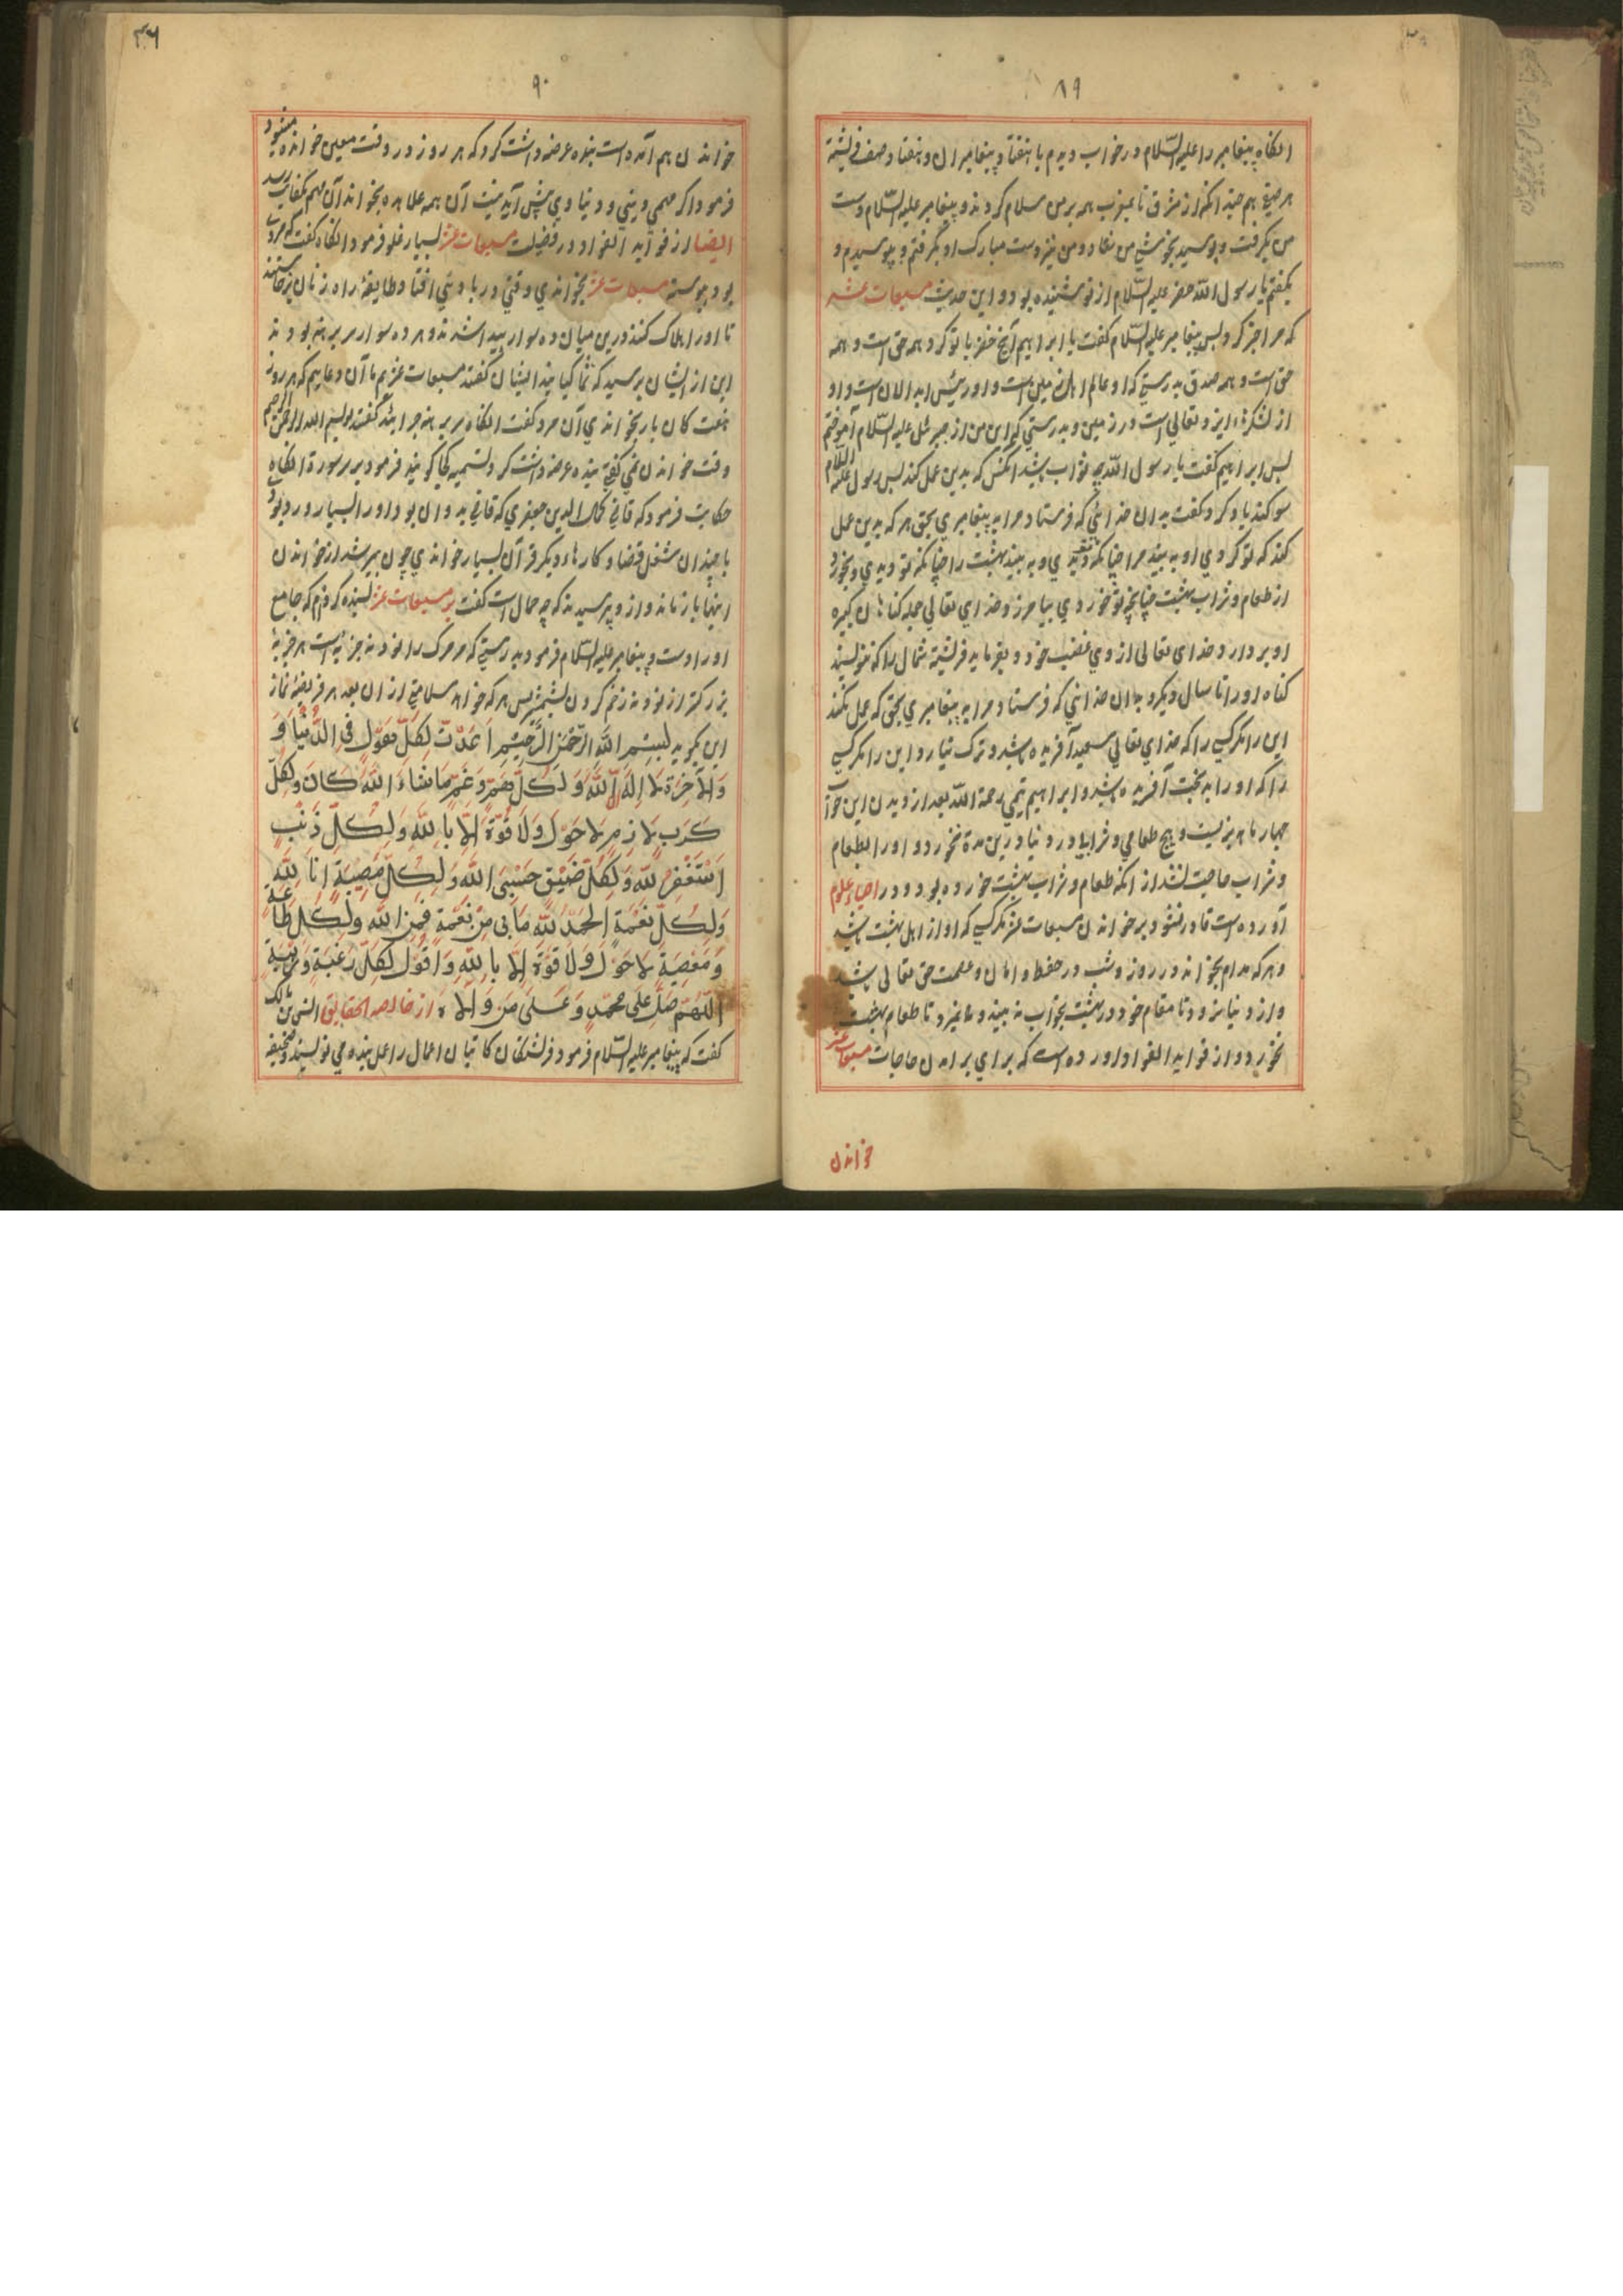 ۸۹
انکاه پیغامبر را علیه السّلام در خواب دیدم با هفتاد پیغامبران و هفتاد صف فریشته
هر صفی هم چندانکه از مشرق تا بمغرب همه بر من سلام کردند و پیغامبر علیه السّلام دست
من بکرفت و بوسید بخوشی من نهاد و من نیز دست مبارک او بکرفتم و ببوسیدم و
بکفتم یا رسول اللّه خضر علیه السّلام از تو شنیده بود و این حدیث مسبعات عشر
که مرا خبر کرد پس پیغامبر علیه السّلام کفت یا ابراهیم آنچ خضر با تو کرد همه حق است و همه
حق است و همه صدق بدرستی که او عالم اهل زمین است و او رئیس ابدالان است و او
از لشکرهاء ایزد تعالی است در زمین و بدرستی که این من از جبرئیل علیه السّلام آموختم
پس ابراهیم کفت یا رسول اللّه چه ثواب باشد انکس که بدین عمل کند پس رسول علیه السّلام
سوکند یاد کرد و کفت بدان خدائی که فرستاد مرا به پیغامبری بحق هر که بدین عمل
کند که تو کردی او به بیند مرا چنانکه تو دیدی و به بیند بهشت را چنانکه تو دیدی و بخورد
از طعام و شراب بهشت چنانچه تو خوردی بیامرزد خدای تعالی جمله کناهان کبیره
او بردارد خدای تعالی از وی غضب خود و بفرماید فریشته شمال را که ننویسد
کناه او را تا سال دیکر و بدان خدائی که فرستاد مرا به پیغامبری بحق که عمل نکند
این را مکر کسی را که خدای تعالی سعید آفریده باشد و ترک نیارد این را مکر کسی
را که او را بد بخت آفریده باشد و ابراهیم تیمی رحمة اللّه بعد از دیدن این خواب
چهار ماه بزیست و هیچ طعامی و شرابی در دنیا درین مدة نخورد و او را بطعام
و شراب حاجت نشد از انکه طعام و شراب بهشت خورده بود و در احیاء علوم
آورده است قادر نشود بر خواندن مسبعات عشر مکر کسی که او از اهل بهشت باشد
و هر که مدام بخواند در روز و شب در حفظ و امان و عصمت حق تعالی باشد
و از دنیا نرود تا مقام خود در بهشت بخواب نه بیند و نمیرد تا طعام بهشت
نخورد و از فواید الفواد اورده است که برای برامدن حاجات مسبعات عشر
خواندن
۹۰
خواندن هم آمده است بنده عرضه داشت کرد که هر روز در وقت معین خوانده میشود
فرمود اکر مهمی دینی و دنیاوی پیش آید نیت آن همه علاحده بخواند آن مهم بکفایت رسد
ایضا از فواید الفواد در فضیلت مسبعات عشر بسیار غلو فرمود انکاه کفت که مردی
بود پیوسته مسبعات عشر بخواندی وقتی در بادیئی افتاد طایفهٔ راه زنان برخاستند
تا او را هلاک کنند درین میان ده سوار پیدا شدند و هر ده سوار سر برهنه بودند
این از ایشان پرسید که شما کیانید ایشان کفتند مسبعات عشریم ما آن دعاییم که هر روز
هفت کان بار بخواندی آن مرد کفت انکاه سر برهنه چرا اید کفتند بسم اللّه الرحمن الرحیم
وقت خواندن نمی کفتی بنده عرضه داشت کرد تسمیه کجا کویند فرمود بر سر سورة انکاه
حکایت فرمود که قاضی کمال الدین جعفری که قاضی بداون بود او را بسیار ورد بود
با چندان شغل قضا و کارهاء دیکر قرآن بسیار خواندی چون پیر شد از خواندن
اینها باز ماند و از و پرسیدند که چه حال است کفت بر مسبعات عشر بسنده کردم که جامع
اوراد است و پیغامبر علیه السّلام فرمود بدرستی که مر مرک را نود نه جزئیه است هر جزیهٔ
بزرکتر از نود نه زخم کردن بشمشیر پس هر که خواهد سلامتی از ان بعد هر فریضهٔ نماز
این بکوید بِسْمِ اللَّهِ الرَّحْمَنِ الرَّحِيْمِ اَعْدَدْتُ لِكُلِّ هَوْلٍ فِي الدُّنْيَا وَ
وَالْآخِرَةِ لَا إِلَهَ إِلَّا اللَّهُ وَلِكُلِّ هَمٍّ وَغَمٍّ مَا شَاءَ اللَّهُ كَانَ وَلِكُلِّ
كَرْبٍ لَازِمٍ لَا حَوْلَ وَلَا قُوَّةَ إِلَّا بِاللَّهِ وَلِكُلِّ ذَنْبٍ
اَسْتَغْفِرُ اللَّهَ وَلِكُلِّ ضَيْقٍ حَسْبِيَ اللَّهُ وَلِكُلِّ مُصِيْبَةٍ اِنَّا لِلَّهِ
وَلِكُلِّ نِعْمَةٍ الْحَمْدُ لِلَّهِ مَا بِي مِنْ نِعْمَةٍ فَمِنَ اللَّهِ وَلِكُلِّ طَاعَةٍ
وَمَعْصِيَةٍ لَا حَوْلَ وَلَا قُوَّةَ إِلَّا بِاللَّهِ وَاَقُوْلُ لِكُلِّ رَغْبَةٍ وَرَهْبَةٍ
اَللَّهُمَّ صَلِّ عَلَى مُحَمَّدٍ وَعَلَى مَنْ وَالَاهُ از خالصه الحقایق انس بن مالک
کفت که پیغامبر علیه السّلام فرمود فرشتکان کاتبان اعمال را عمل بنده می نویسند و صحیفه